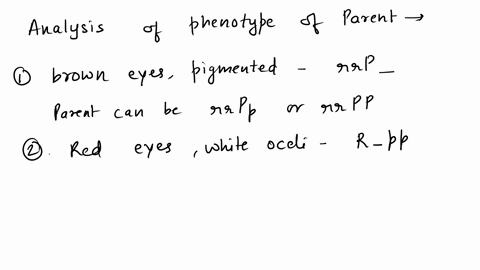 Analysis of phenotype of Parent →
① brown eyes, pigmented - rrP_
Parent can be rrPp or rrPP
②. Red eyes, white ocelli - R_pp